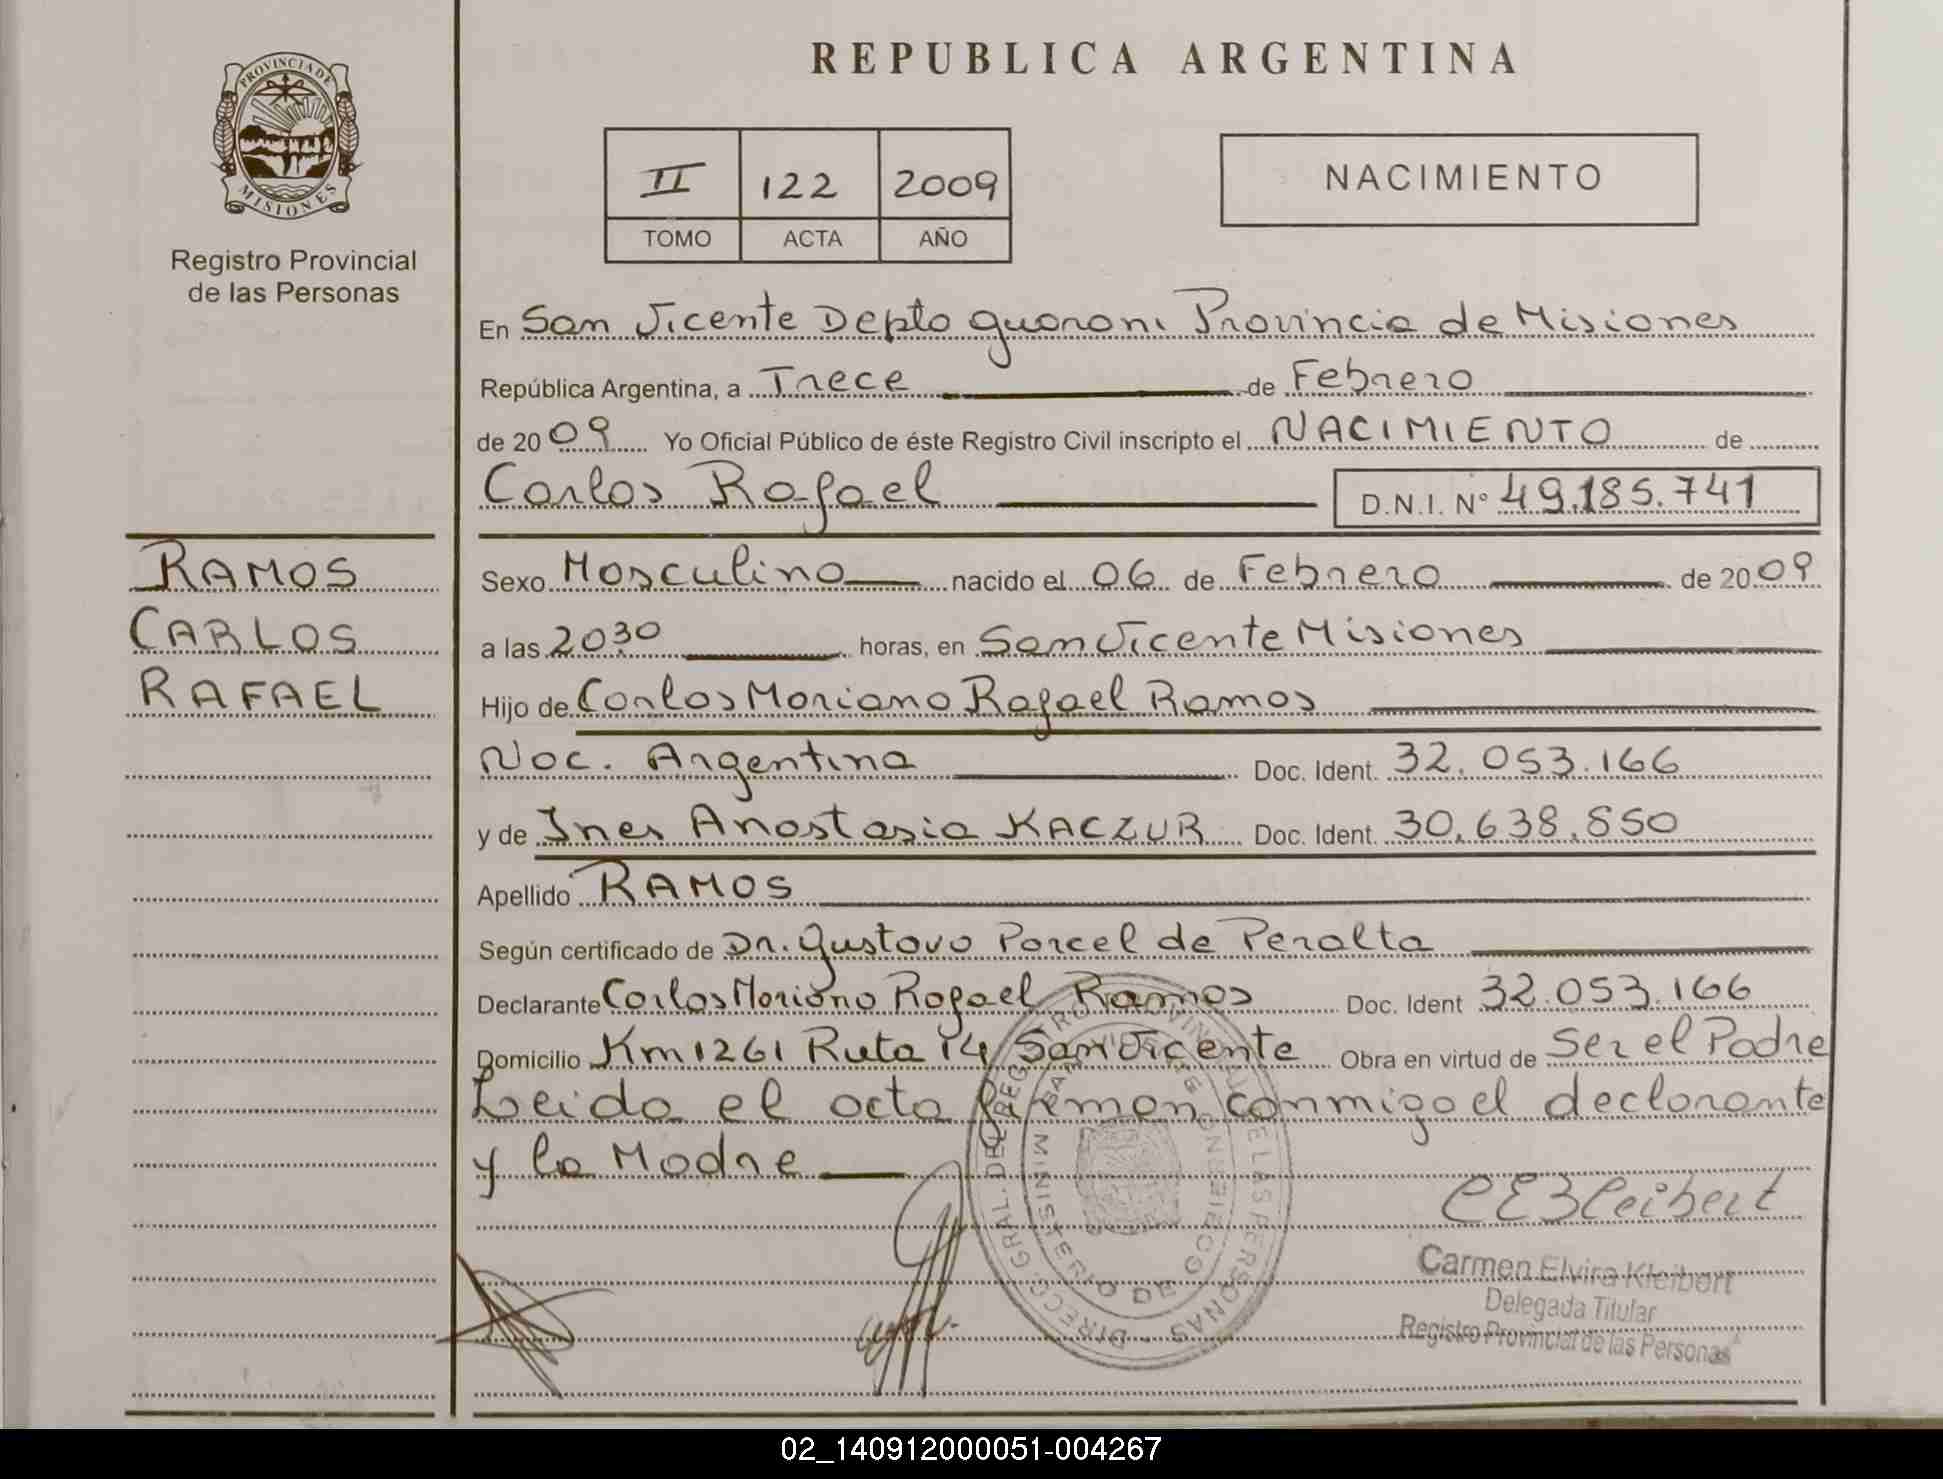 PROVINCIA DE
MISIONES
Registro Provincial
de las Personas
REPUBLICA ARGENTINA
II 122 2009
TOMO ACTA AÑO
NACIMIENTO
En San Vicente Depto guarani Provincia de Misiones
República Argentina, a Trece de Febrero
de 2009 Yo Oficial Público de éste Registro Civil inscripto el NACIMIENTO de
Carlos Rafael D.N.I. Nº 49.185.741
RAMOS
CARLOS
RAFAEL
Sexo Masculino nacido el 06 de Febrero de 2009
a las 20.30 horas, en San Vicente Misiones
Hijo de Carlos Mariano Rafael Ramos
Nac. Argentina Doc. Ident. 32.053.166
y de Ines Anastasia KACZUR Doc. Ident. 30.638.850
Apellido RAMOS
Según certificado de Dr. Gustavo Porcel de Peralta
Declarante Carlos Mariano Rafael Ramos Doc. Ident 32.053.166
Domicilio Km 1261 Ruta 14 San Vicente Obra en virtud de Ser el Padre
Leida el acta firman conmigo el declarante
y la Madre
DIRECC. GRAL. DEL REGISTRO PROVINCIAL DE LAS PERSONAS
MINISTERIO DE GOBIERNO
CEKleibert
Carmen Elvira Kleibert
Delegada Titular
Registro Provincial de las Personas
02_140912000051-004267